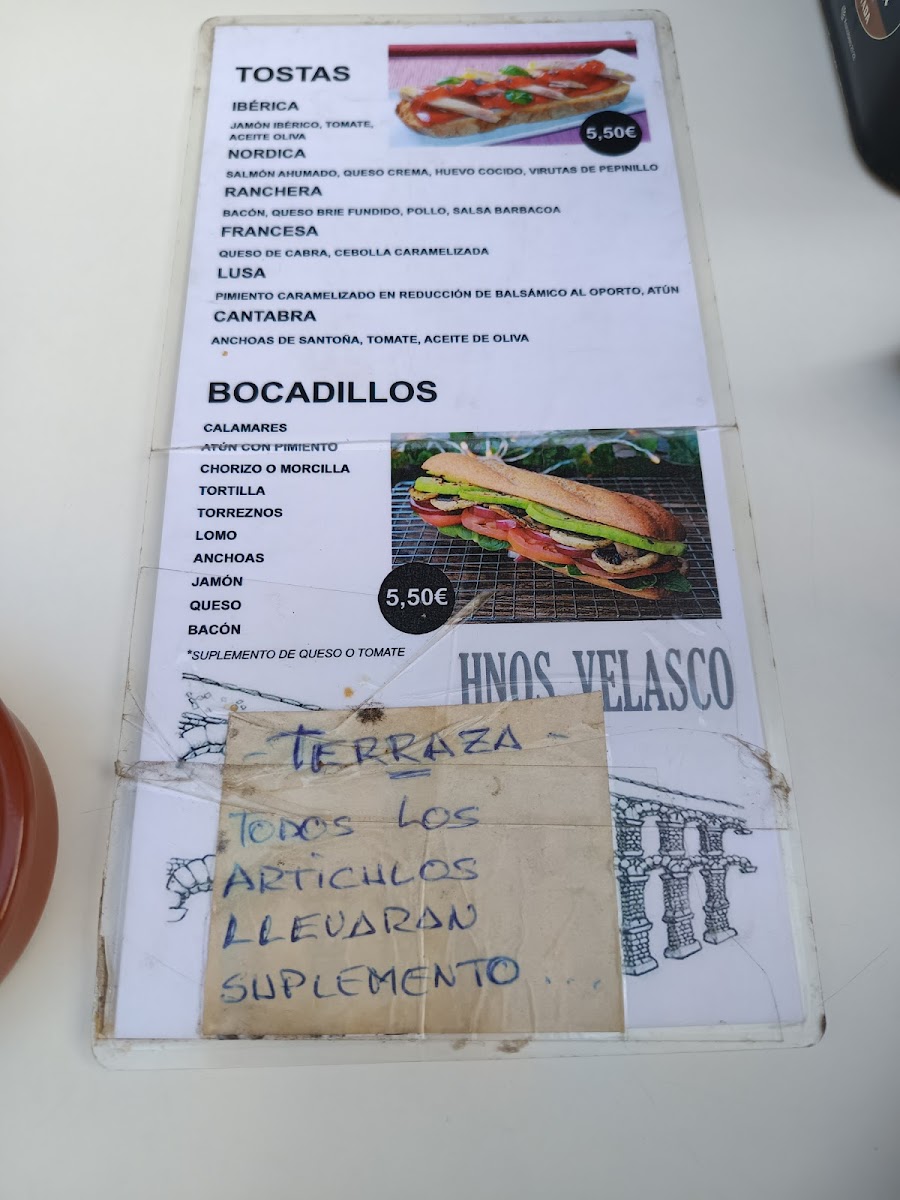 TOSTAS
IBÉRICA
JAMÓN IBÉRICO, TOMATE,
ACEITE OLIVA
5,50€
NORDICA
SALMÓN AHUMADO, QUESO CREMA, HUEVO COCIDO, VIRUTAS DE PEPINILLO
RANCHERA
BACÓN, QUESO BRIE FUNDIDO, POLLO, SALSA BARBACOA
FRANCESA
QUESO DE CABRA, CEBOLLA CARAMELIZADA
LUSA
PIMIENTO CARAMELIZADO EN REDUCCIÓN DE BALSÁMICO AL OPORTO, ATÚN
CANTABRA
ANCHOAS DE SANTOÑA, TOMATE, ACEITE DE OLIVA
BOCADILLOS
CALAMARES
ATÚN CON PIMIENTO
CHORIZO O MORCILLA
TORTILLA
TORREZNOS
LOMO
ANCHOAS
JAMÓN
QUESO
BACÓN
5,50€
*SUPLEMENTO DE QUESO O TOMATE
HNOS VELASCO
- TERRAZA -
TODOS LOS
ARTICULOS
LLEVARAN
SUPLEMENTO ...